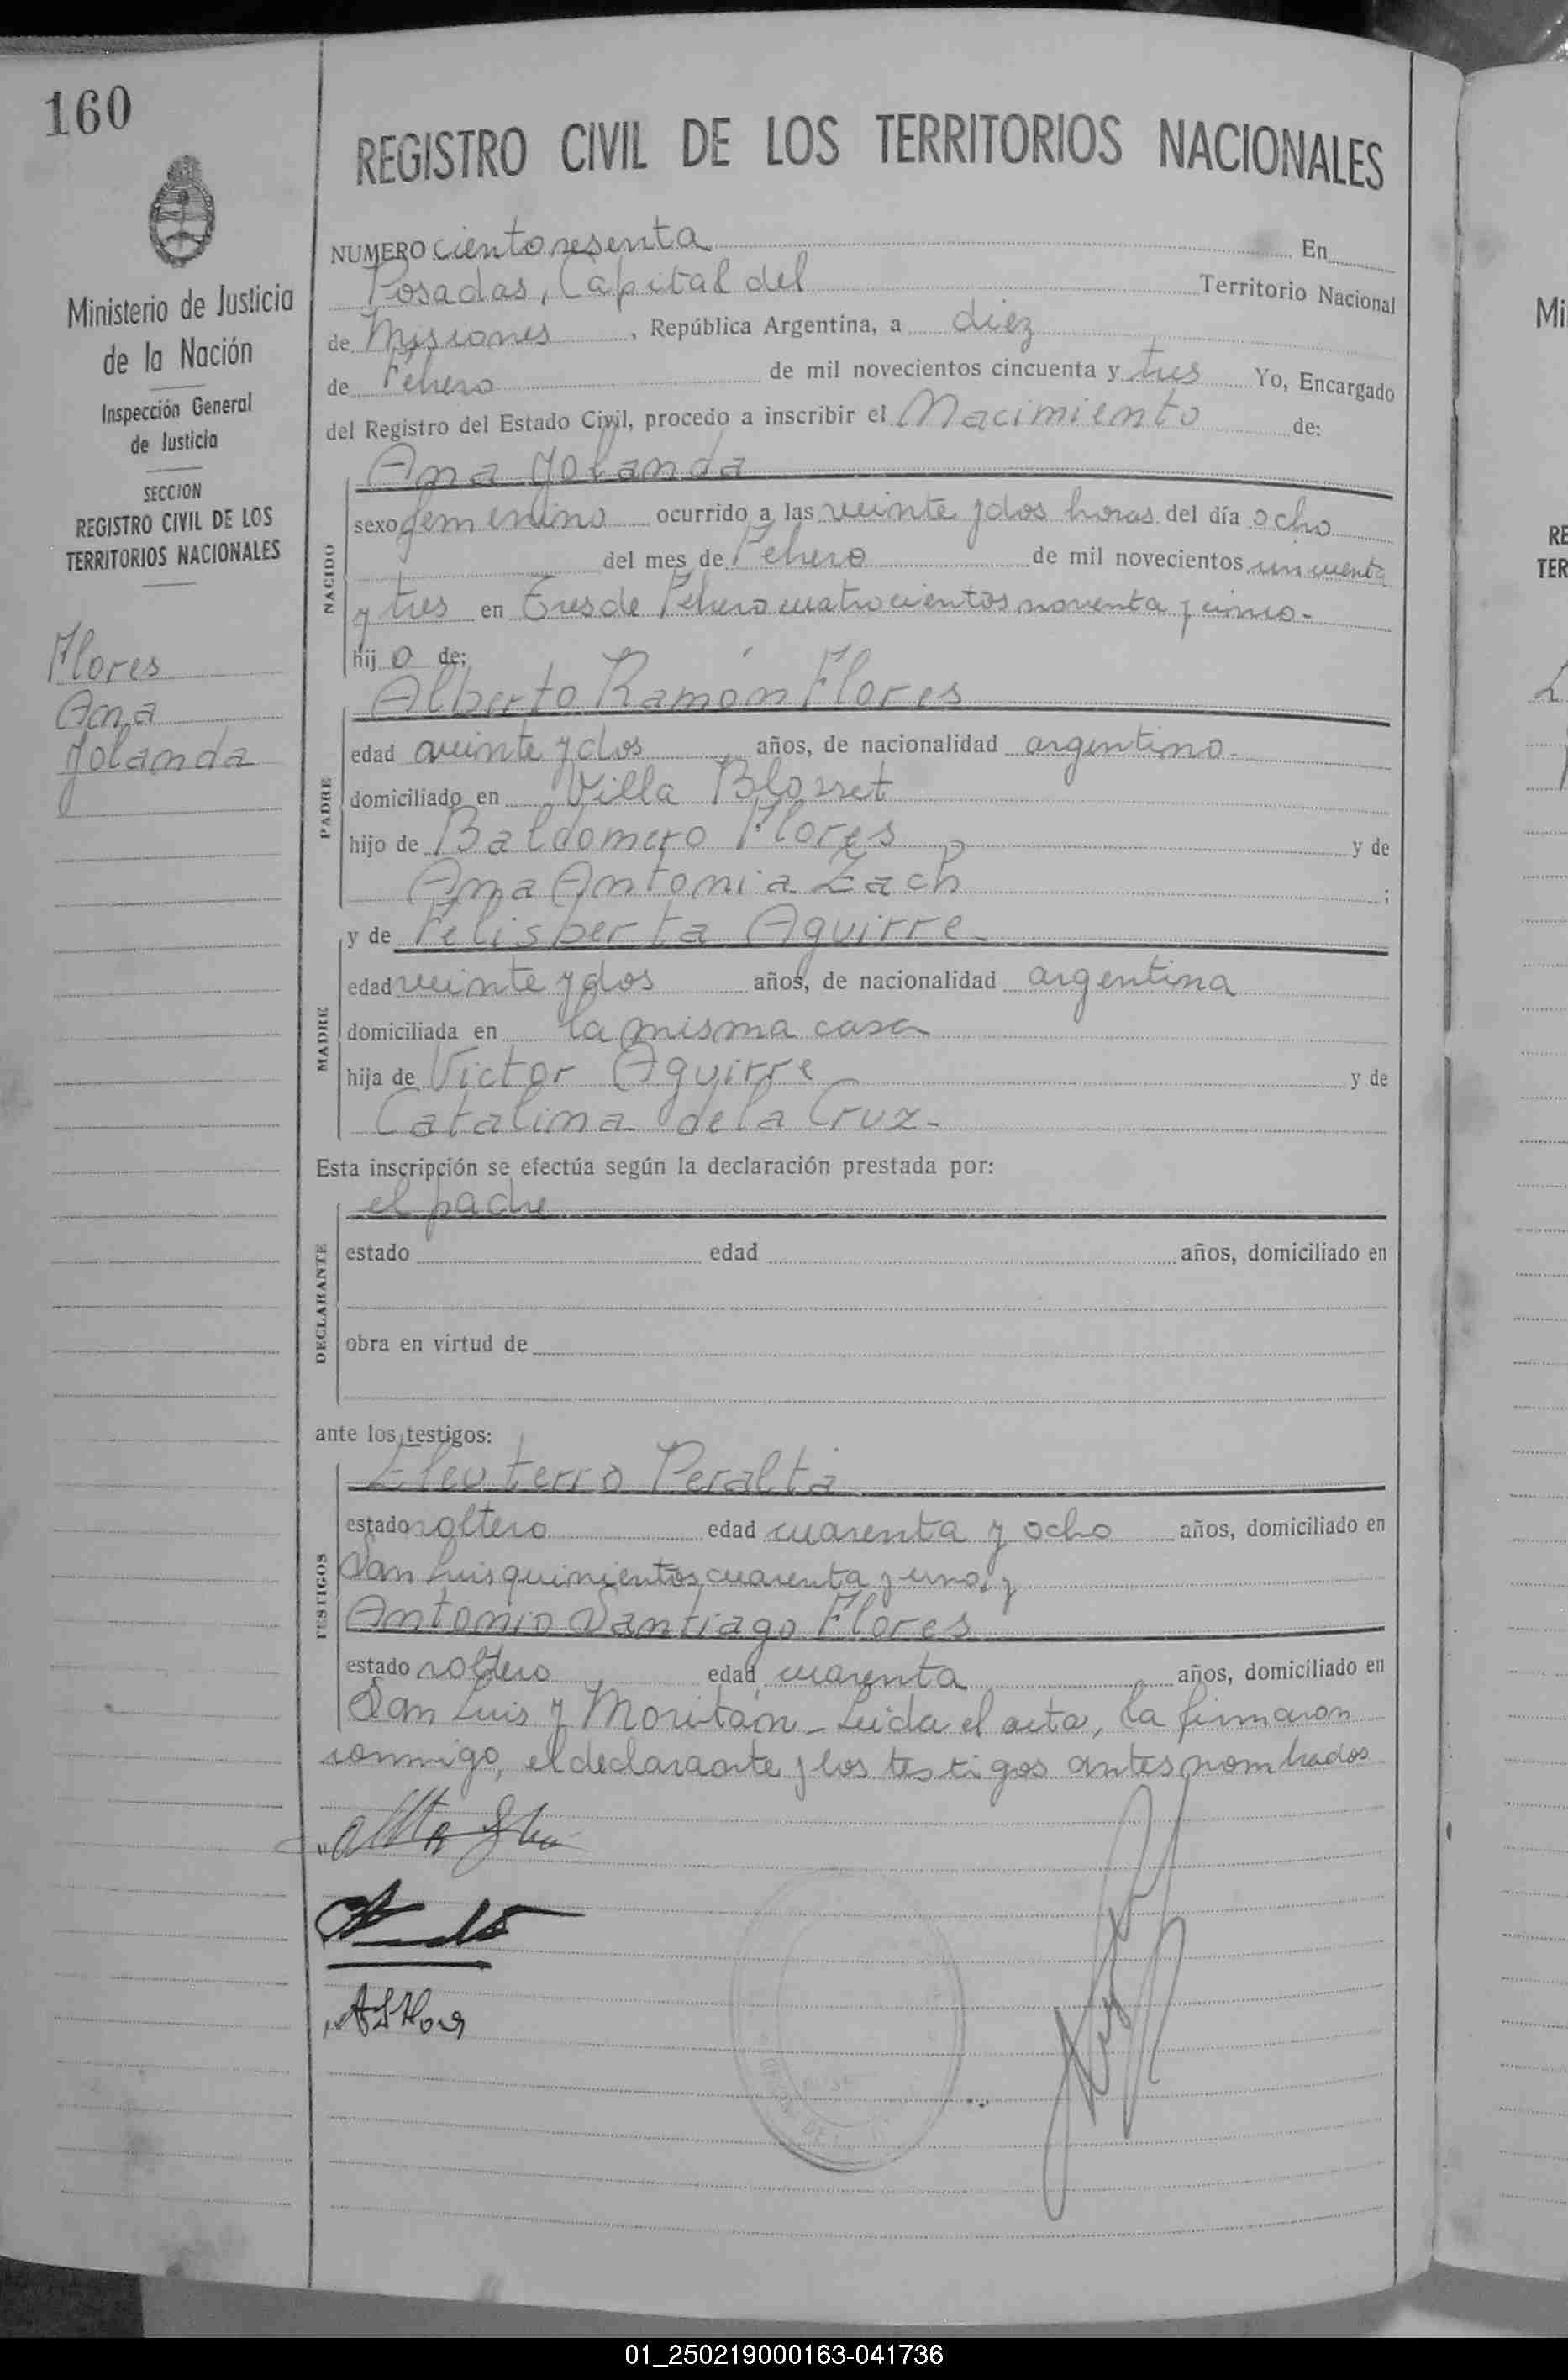 160
REGISTRO CIVIL DE LOS TERRITORIOS NACIONALES
Ministerio de Justicia
de la Nación
Inspección General
de Justicia
SECCION
REGISTRO CIVIL DE LOS
TERRITORIOS NACIONALES
Flores
Ana
Yolanda
NUMERO ciento sesenta En
Posadas, Capital del Territorio Nacional
de Misiones, República Argentina, a diez
de Febrero de mil novecientos cincuenta y tres Yo, Encargado
del Registro del Estado Civil, procedo a inscribir el Nacimiento de:
Ana Yolanda
NACIDO
sexo femenino ocurrido a las veinte y dos horas del día ocho
del mes de Febrero de mil novecientos cincuenta
y tres en Tres de Febrero cuatrocientos noventa y cinco-
hij o de:
Alberto Ramón Flores
PADRE
edad veinte y dos años, de nacionalidad argentino-
domiciliado en Villa Blosset
hijo de Baldomero Flores y de
Ana Antonia Zach;
y de Felisberta Aguirre-
MADRE
edad veinte y dos años, de nacionalidad argentina
domiciliada en la misma casa
hija de Victor Aguirre y de
Catalina de la Cruz-
Esta inscripción se efectúa según la declaración prestada por:
el padre
DECLARANTE
estado edad años, domiciliado en
obra en virtud de
ante los testigos:
Eleuterio Peralta
TESTIGOS
estado soltero edad cuarenta y ocho años, domiciliado en
San Luis quinientos cuarenta y uno, y
Antonio Santiago Flores
estado soltero edad cuarenta años, domiciliado en
San Luis y Moritán - Leida el acta, la firmaron
conmigo, el declarante y los testigos antes nombrados
Mi
RE
TER
01_250219000163-041736